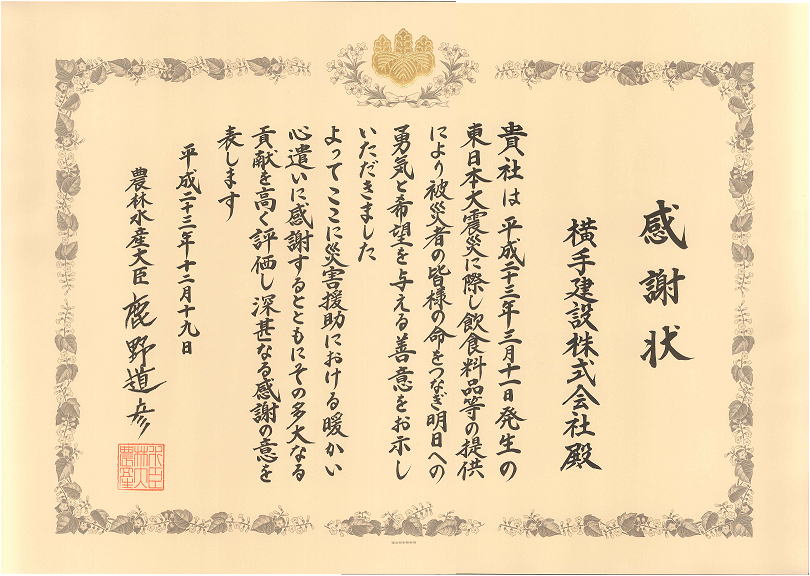 感謝状
横手建設株式会社殿
貴社は平成二十三年三月十一日発生の
東日本大震災に際し飲食料品等の提供
により被災者の皆様の命をつなぎ明日への
勇気と希望を与える善意をお示し
いただきました
よってここに災害援助における暖かい
心遣いに感謝するとともにその多大なる
貢献を高く評価し深甚なる感謝の意を
表します
平成二十三年十二月十九日
農林水産大臣 鹿野道彦